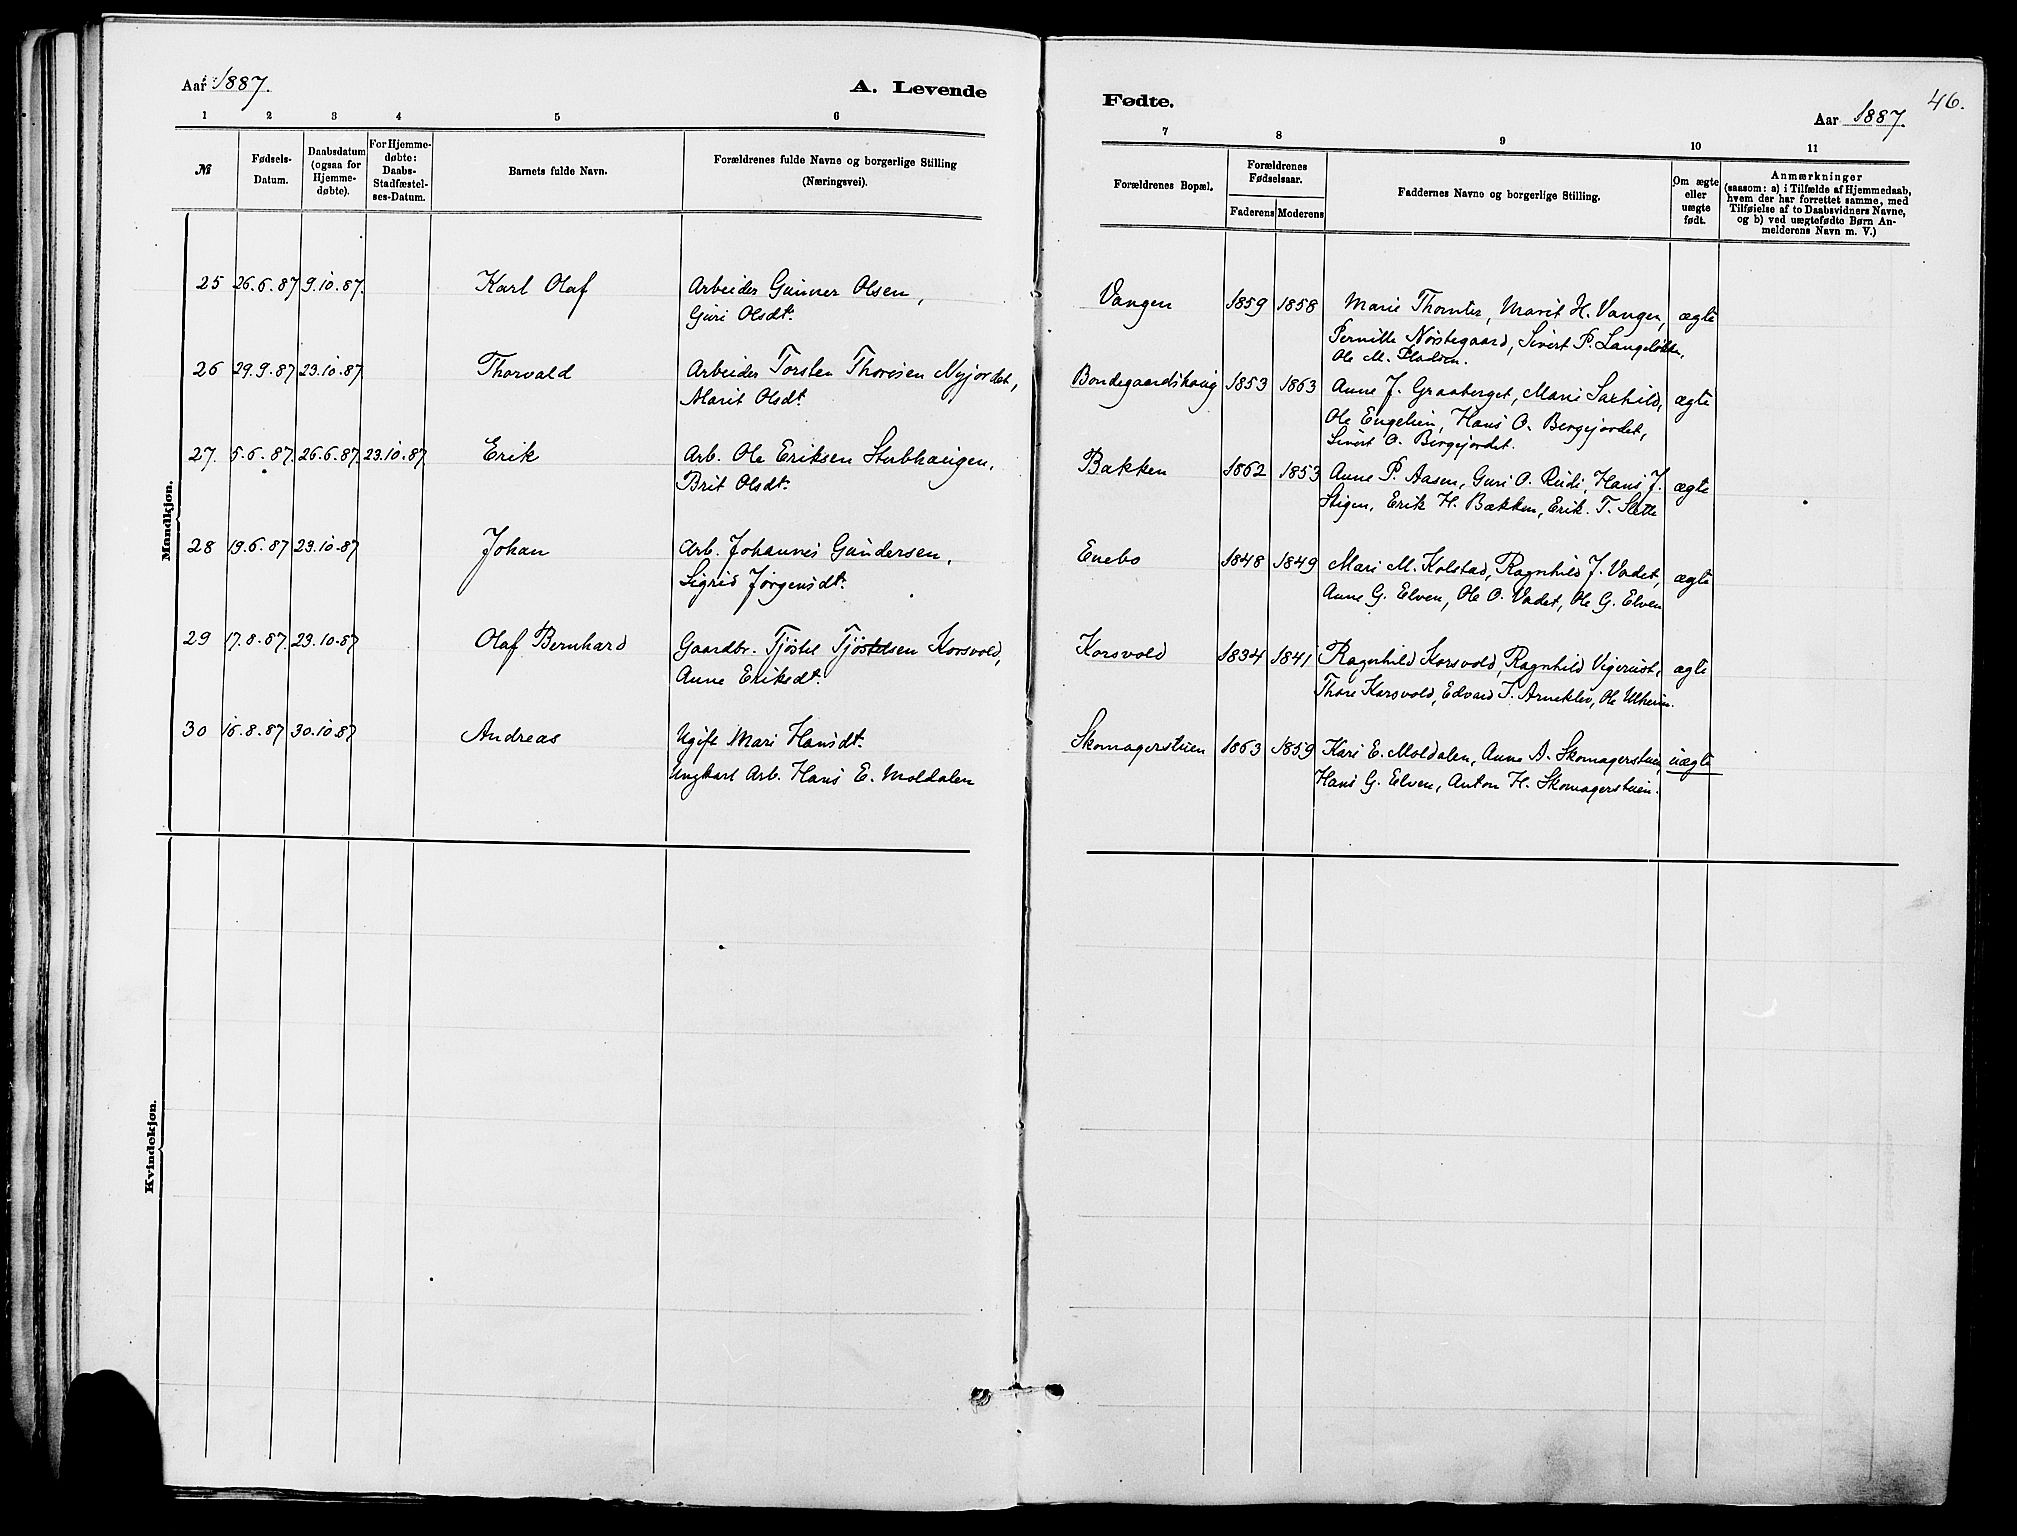 Aar 1887.
A. Levende
1 2 3 4 5 6
№
Fødsels-
Datum.
Daabsdatum
(ogsaa for
Hjemme-
døbte).
For Hjemme-
døbte:
Daabs-
Stadfæstel-
ses-Datum.
Barnets fulde Navn.
Forældrenes fulde Navne og borgerlige Stilling
(Næringsvei).
Mandkjøn.
25 26.6.87 9.10.87. Karl Olaf Arbeider Gunner Olsen,
Guri Olsdt.
26 29.9.87 23.10.87 Thorvald Arbeider Torsten Thoresen Nyjordet,
Marit Olsdt.
27. 5.6.87. 26.6.87. 23.10.87 Erik Arb. Ole Eriksen Stubhaugen,
Brit Olsdt.
28 19.6.87 23.10.87 Johan Arb. Johannes Gundersen,
Sigrid Jørgensdt.
29 17.8.87. 23.10.87 Olaf Bernhard Gaardbr. Tjøstel Tjøstelsen Korsvold,
Anne Eriksdt.
30 16.8.87. 30.10.87 Andreas Ugift Mari Hansdt.
Ungkarl Arb. Hans E. Moldalen
Kvindekjøn.
46.
Fødte.
Aar 1887.
7 8 9 10 11
Forældrenes Bopæl.
Forældrenes
Fødselsaar.
Faderens Moderens
Faddernes Navne og borgerlige Stilling.
Om ægte
eller
uægte
født.
Anmærkninger
(saasom: a) i Tilfælde af Hjemmedaab,
hvem der har forrettet samme, med
Tilføielse af to Daabsvidners Navne,
og b) ved uægtefødte Børn An-
melderens Navn m. V.)
Vangen 1859 1858 Marie Thomter, Marit H. Vangen, ægte
Pernille Nøstegaard, Sivert P. Langeløkken,
Ole M.
Bondegaardshaug 1853 1863 Anne J. Graaberget, Marie Sarhild, ægte
Ole Engelien, Hans O. Bergejordet,
Sivert O. Bergejordet.
Bakken 1862 1853 Anne P. Aasen, Guri O. Rudi, Hans J. ægte
Stigen, Erik H. Bækken, Erik T. Slette
Enebo 1848 1849 Mari M. Kolstad, Ragnhild J. Vadet, ægte
Anne G. Elven, Ole O. Vadet, Ole G. Elven
Korsvold 1834 1841 Ragnhild Korsvold, Ragnhild Vigerust, ægte
Thore Korsvold, Edvard T. Arneklev, Ole Ulheim.
Skomagerstuen 1863 1859 Kari E. Moldalen, Anne A. Skomagerstuen, uægte
Hans G. Elven, Anton H. Skomagerstuen.